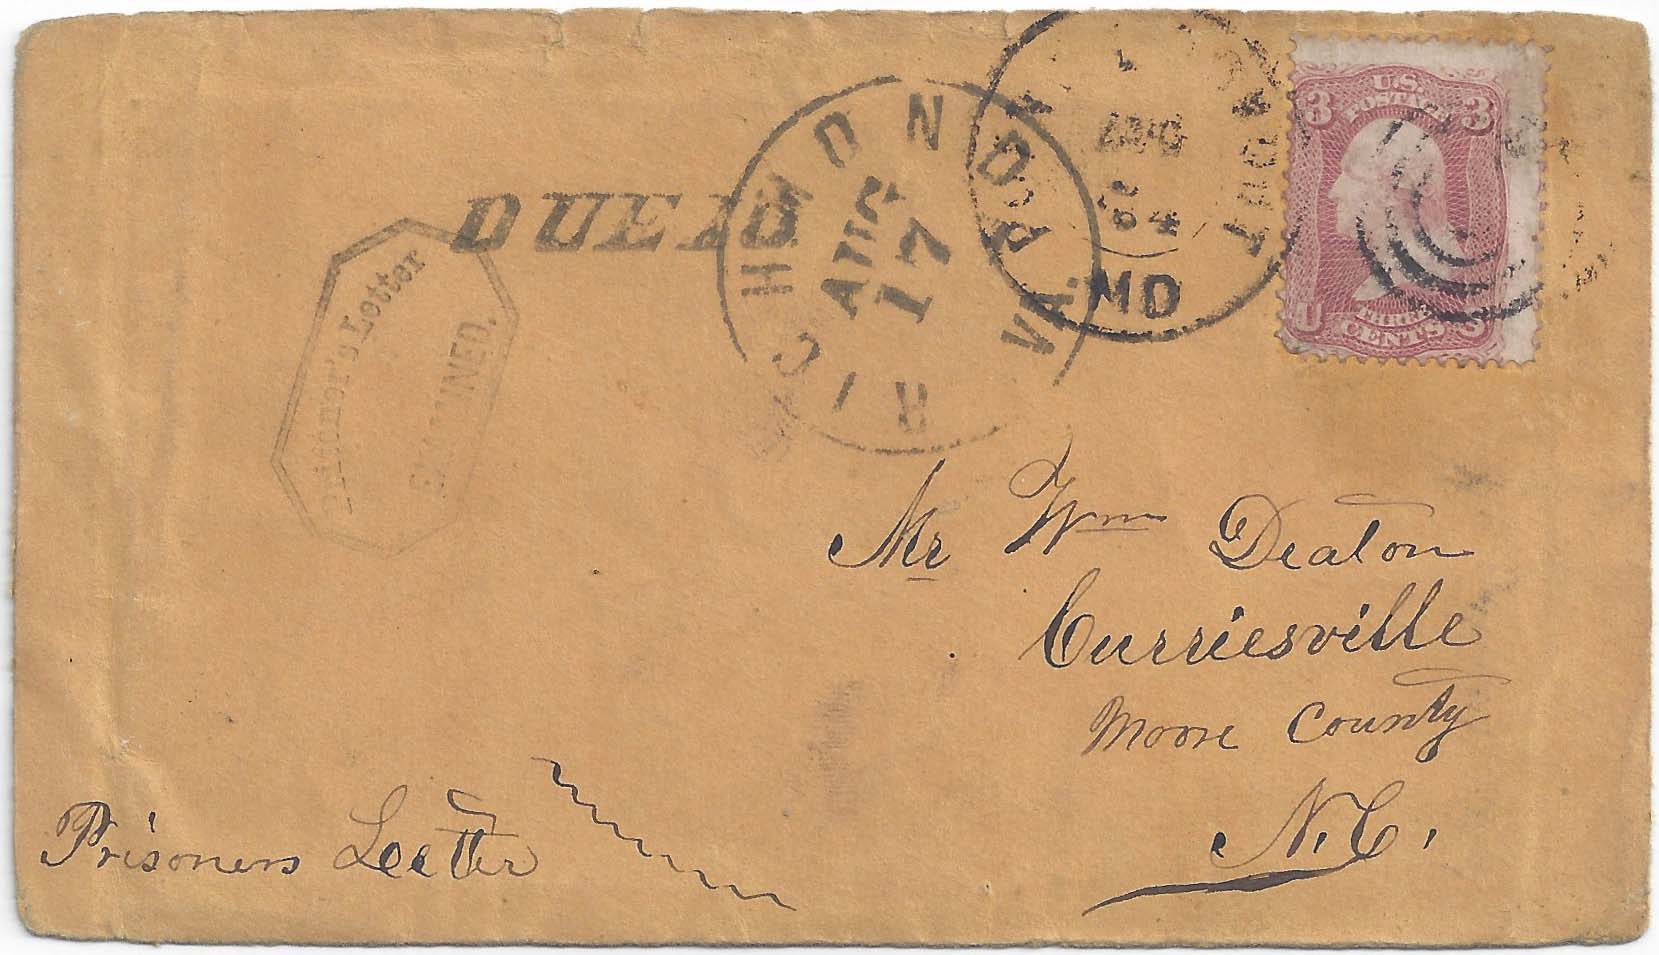 Prisoner's Letter
EXAMINED.
DUE 10
RICHMOND VA.
AUG
17
POINT LOOKOUT
AUG
MD
3 U.S. 3
POSTAGE
U THREE S
CENTS
Mr Wm Deaton
Curriesville
Moore County
N.C.
Prisoners Letter